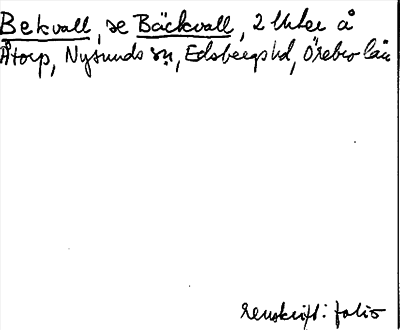 Bekvall, se Bäckvall, 2 Urter å
Åtorp, Nysunds sn, Edsbergs hd, Örebro län
renskrift: folio